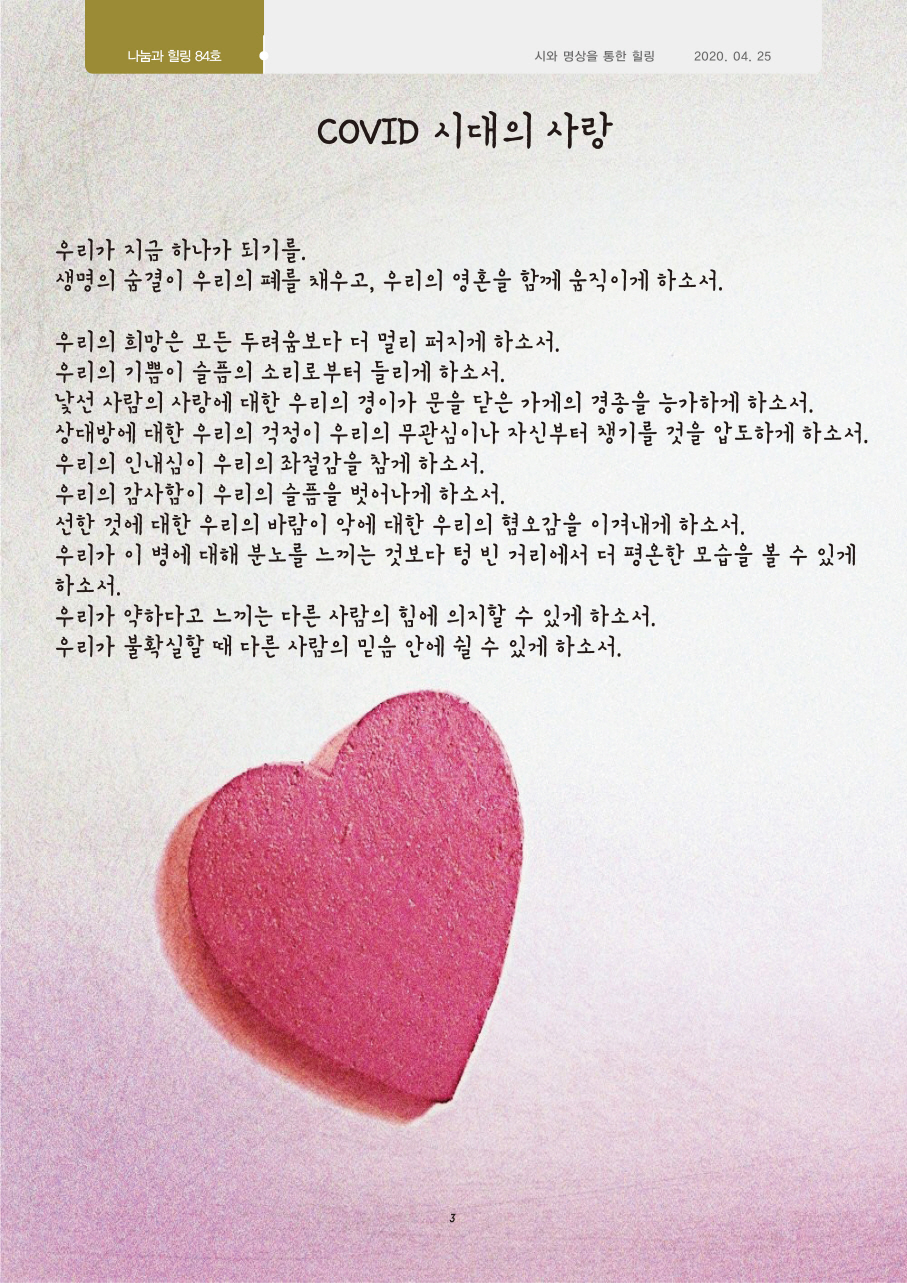 나눔과 힐링 84호
시와 명상을 통한 힐링 2020. 04. 25
COVID 시대의 사랑
우리가 지금 하나가 되기를.
생명의 숨결이 우리의 폐를 채우고, 우리의 영혼을 함께 움직이게 하소서.
우리의 희망은 모든 두려움보다 더 멀리 퍼지게 하소서.
우리의 기쁨이 슬픔의 소리로부터 들리게 하소서.
낯선 사람의 사랑에 대한 우리의 경이가 문을 닫은 가게의 경종을 능가하게 하소서.
상대방에 대한 우리의 걱정이 우리의 무관심이나 자신부터 챙기를 것을 압도하게 하소서.
우리의 인내심이 우리의 좌절감을 참게 하소서.
우리의 감사함이 우리의 슬픔을 벗어나게 하소서.
선한 것에 대한 우리의 바람이 악에 대한 우리의 혐오감을 이겨내게 하소서.
우리가 이 병에 대해 분노를 느끼는 것보다 텅 빈 거리에서 더 평온한 모습을 볼 수 있게
하소서.
우리가 약하다고 느끼는 다른 사람의 힘에 의지할 수 있게 하소서.
우리가 불확실할 때 다른 사람의 믿음 안에 쉴 수 있게 하소서.
3